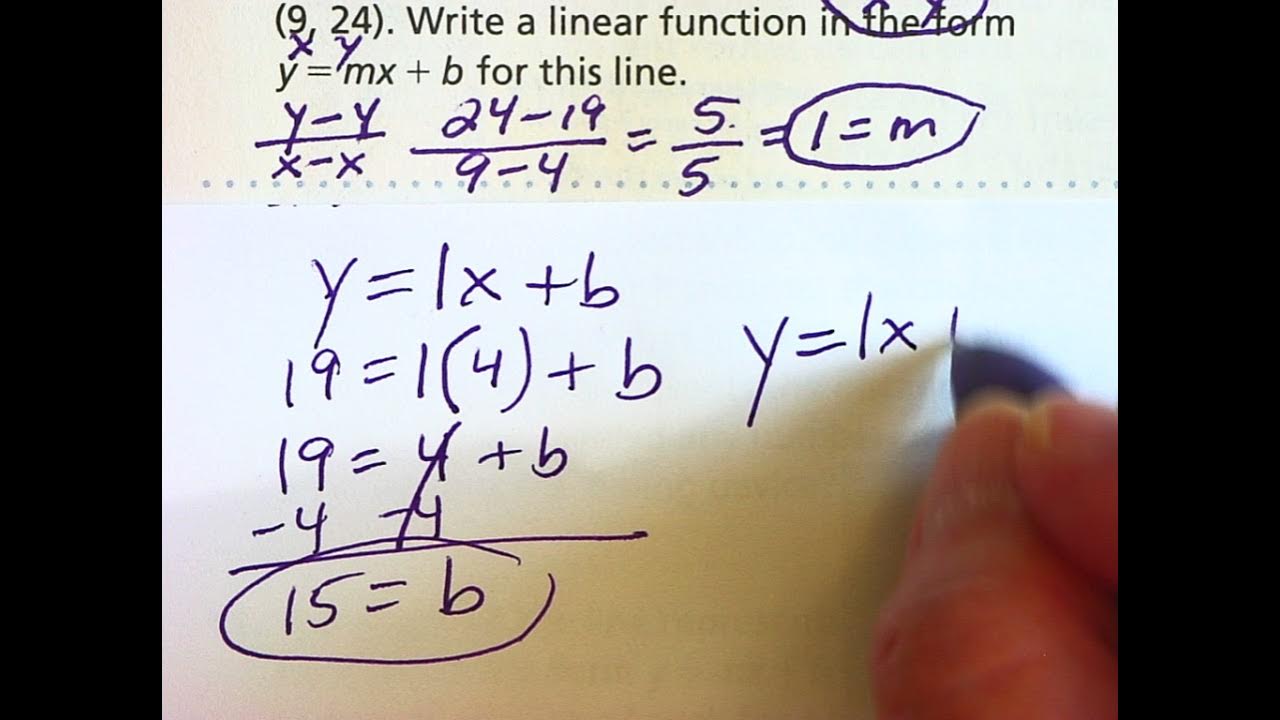 (9, 24). Write a linear function in the form
x y
y = mx + b for this line.
y-y/x-x 24-19/9-4 = 5/5 = 1 = m
y = 1x + b
19 = 1(4) + b
19 = 4 + b
-4 -4
15 = b
y = 1x